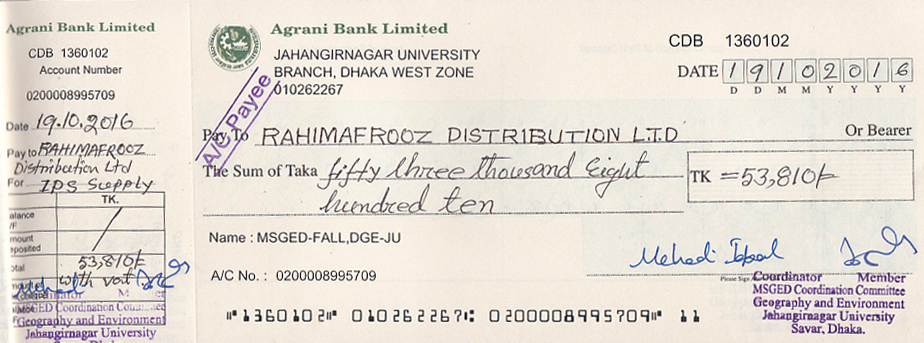 Agrani Bank Limited
CDB 1360102
Account Number
0200008995709
Date 19.10.2016
Pay to RAHIMAFROOZ
Distribution Ltd
For IPS Supply
TK.
53,810/-
with vat
MSGED Coordination
Geography and Environment
Jahangirnagar University
Agrani Bank Limited
JAHANGIRNAGAR UNIVERSITY
BRANCH, DHAKA WEST ZONE
010262267
CDB 1360102
DATE 19102016
D D M M Y Y Y Y
A/C Payee
Pay To RAHIMAFROOZ DISTRIBUTION LTD Or Bearer
The Sum of Taka fifty three thousand Eight
hundred ten
TK =53,810/-
Name : MSGED-FALL,DGE-JU
A/C No. : 0200008995709
Mehedi Iqbal
Please Sign
Coordinator Member
MSGED Coordination Committee
Geography and Environment
Jahangirnagar University
Savar, Dhaka.
⑈1360102⑈ 010262267⑆ 0200008995709⑈ 11